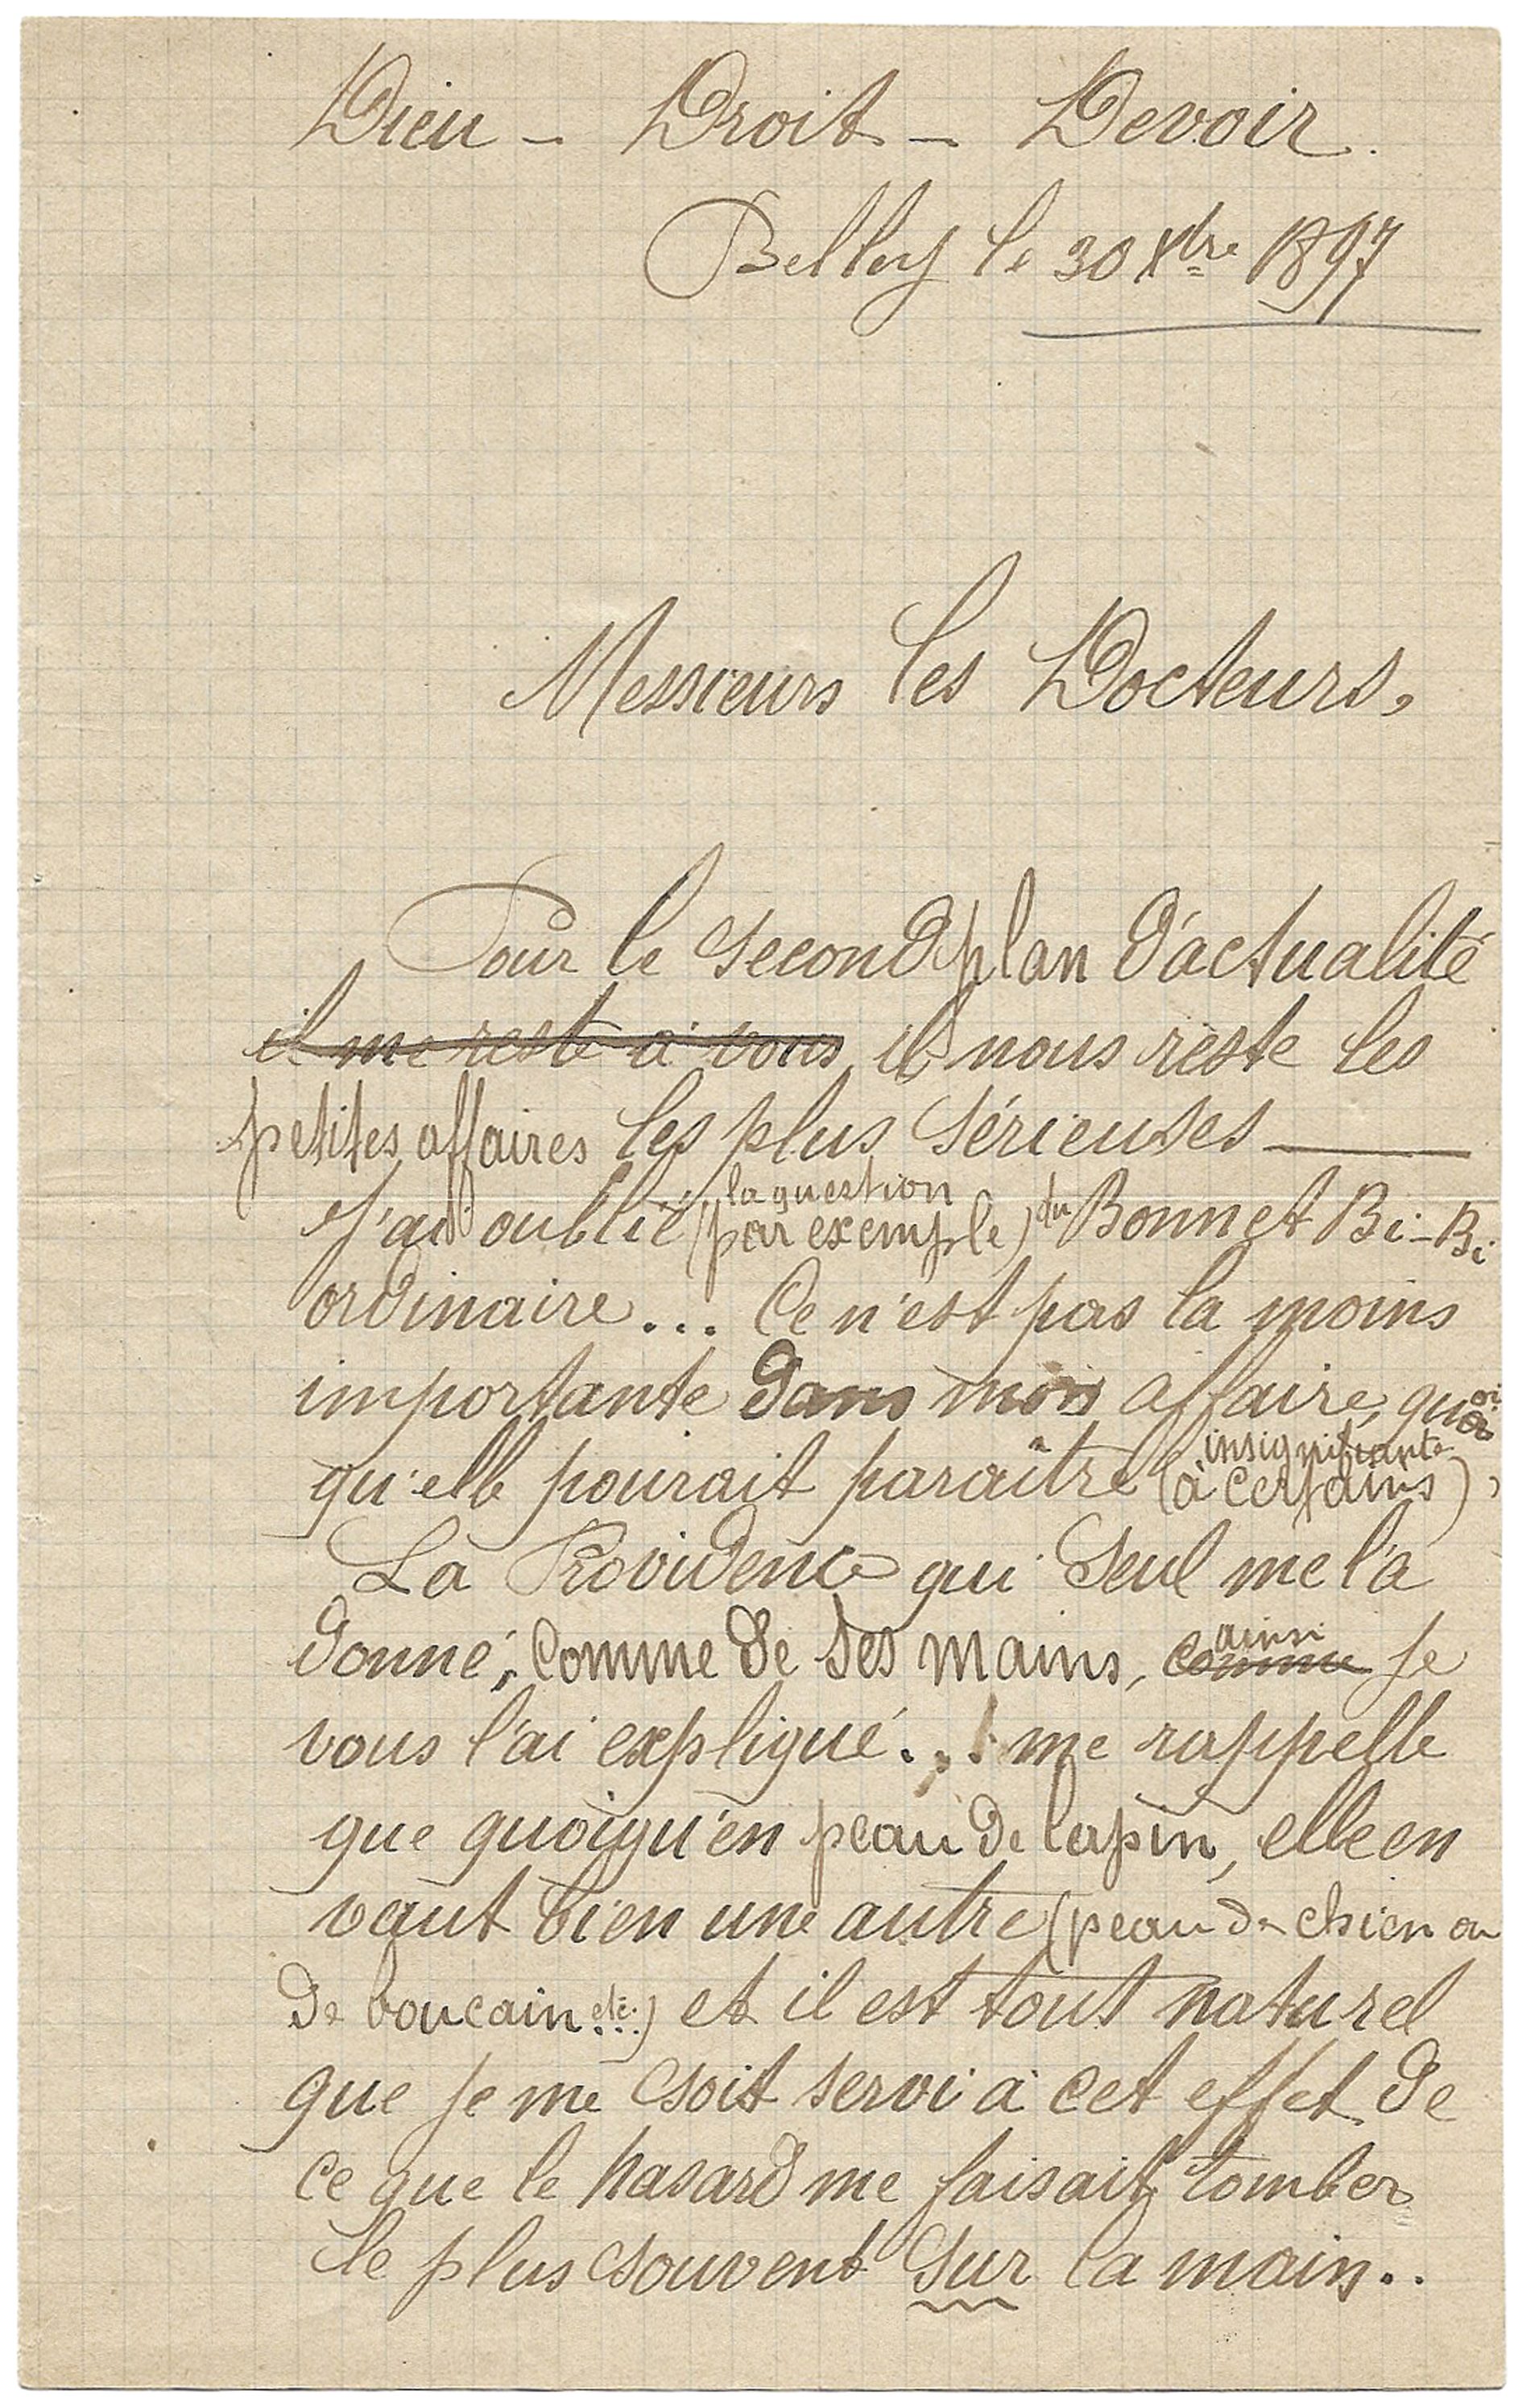 Dieu – Droit – Devoir.
Belley le 30 Xbre 1897
Messieurs les Docteurs,
Pour le second plan d'actualité
il me reste à vous il nous reste les
petites affaires les plus sérieuses —
la question
J'ai oublié (par exemple) du Bonnet Bi-Bi
ordinaire... Ce n'est pas la moins
importante dans mon affaire, quoi
insignifiante
qu'elle pourait paraître (à certains),
La Providence qui seul me l'a
ainsi
donné, comme de ses mains, comme je
vous l'ai expliqué... me rappelle
que quoiqu'en peau de lapin, elle en
vaut bien une autre (peau de chien ou
de boucain etc.) et il est tout naturel
que je me soit servi à cet effet de
ce que le hasard me faisait tomber
le plus souvent sur la main..